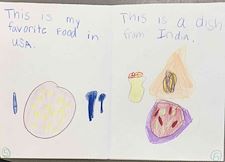 This is my
favorite Food in
USA.
This is a dish
from India.